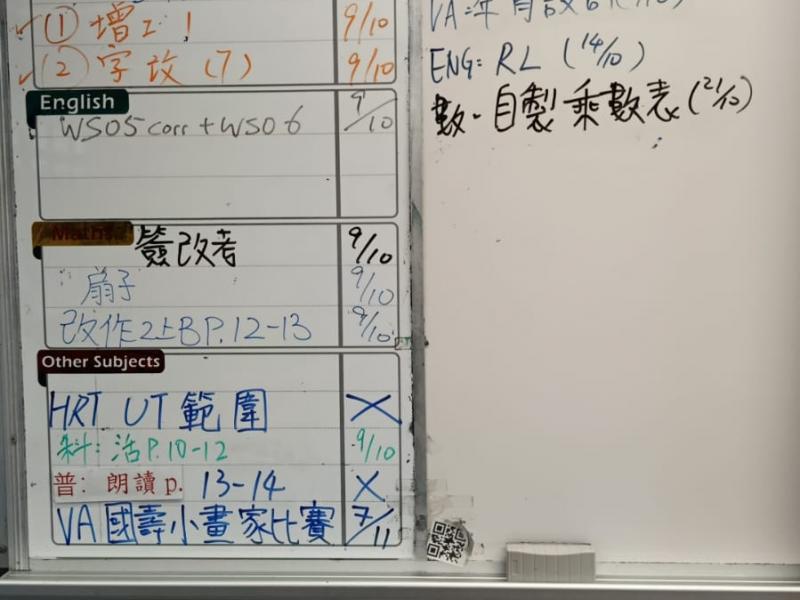 ① 增工! 9/10
② 字改(7) 9/10
English
WS05 corr + WS06 9/10
Maths
簽改者 9/10
扇子 9/10
改作2上B P.12-13 9/10
Other Subjects
HRT UT 範圍 X
科: 活 P.10-12 9/10
普: 朗讀 p. 13-14 X
VA 國壽小畫家比賽 7/11
ENG: RL (14/10)
數. 自製乘數表 (21/10)